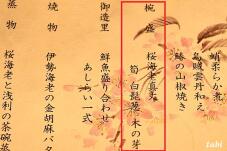 蛸柔らか煮
島鳴雲丹和え
鰆の山椒焼き
椀盛
桜海老真丈
筍 白髭葱 木の芽
御造里
鮮魚盛り合わせ
あしらい一式
焼物
伊勢海老の金胡麻バタ
蒸物
桜海老と浅利の茶碗蒸
tabi